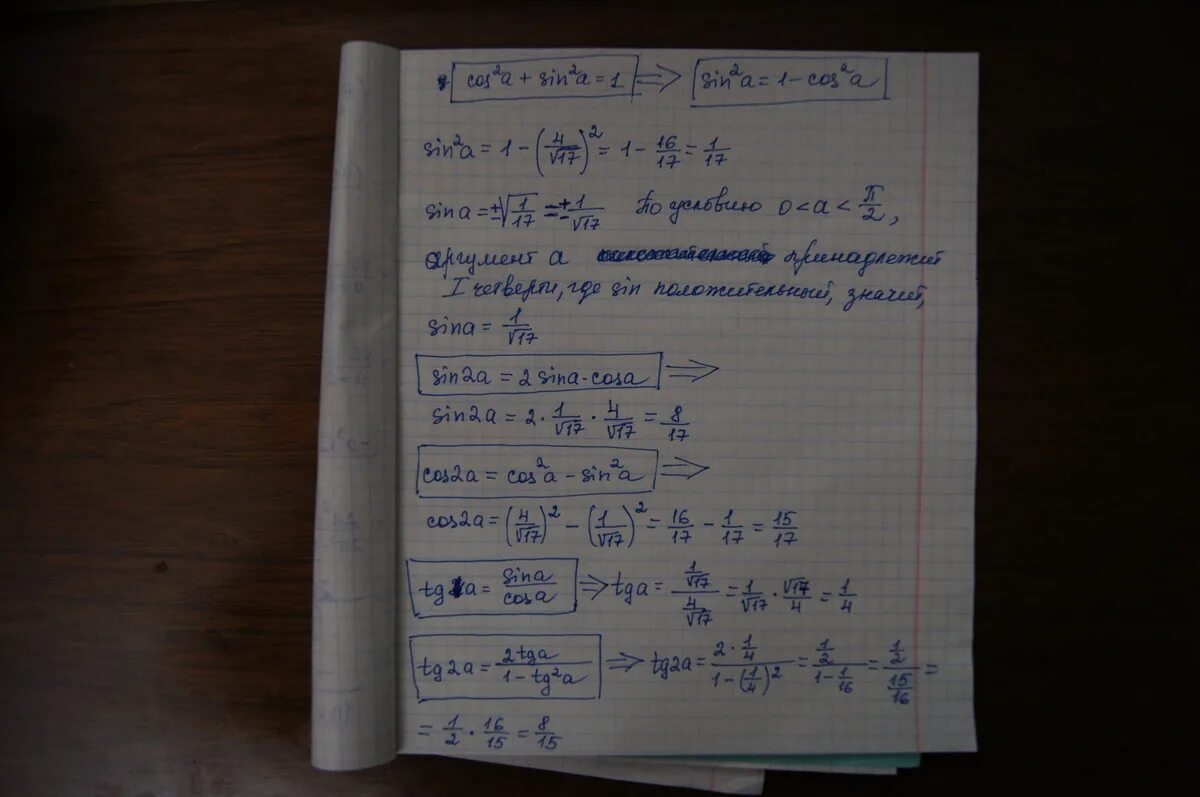 cos²a + sin²a = 1 ⇒ sin²a = 1 - cos²a
sin²a = 1 - (4/√17)² = 1 - 16/17 = 1/17
sin a = ±√(1/17) = ±1/√17 По условию 0 < a < π/2,
аргумент a принадлежит
I четверти, где sin положительный, значит,
sin a = 1/√17
sin2a = 2 sina · cosa ⇒
sin2a = 2 · 1/√17 · 4/√17 = 8/17
cos2a = cos²a - sin²a ⇒
cos2a = (4/√17)² - (1/√17)² = 16/17 - 1/17 = 15/17
tg a = sina/cosa ⇒ tg a = (1/√17)/(4/√17) = 1/√17 · √17/4 = 1/4
tg2a = 2tga/(1 - tg²a) ⇒ tg2a = (2 · 1/4)/(1 - (1/4)²) = (1/2)/(1 - 1/16) = (1/2)/(15/16) =
= 1/2 · 16/15 = 8/15